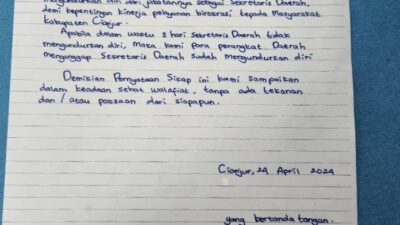 mengundurkan diri dari jabatannya sebagai Sekretaris Daerah,
demi kepentingan kinerja pelayanan birokrasi kepada Masyarakat
Kabupaten Cianjur.
Apabila dalam waktu 3 hari Sekretaris Daerah tidak
mengundurkan diri, Maka kami para perangkat Daerah
menganggap Sekretaris Daerah sudah mengundurkan diri
Demikian Pernyataan Sikap ini kami sampaikan
dalam keadaan sehat walafiat, tanpa ada tekanan
dan / atau paksaan dari siapapun.
Cianjur, 24 April 2024
yang bertanda tangan.